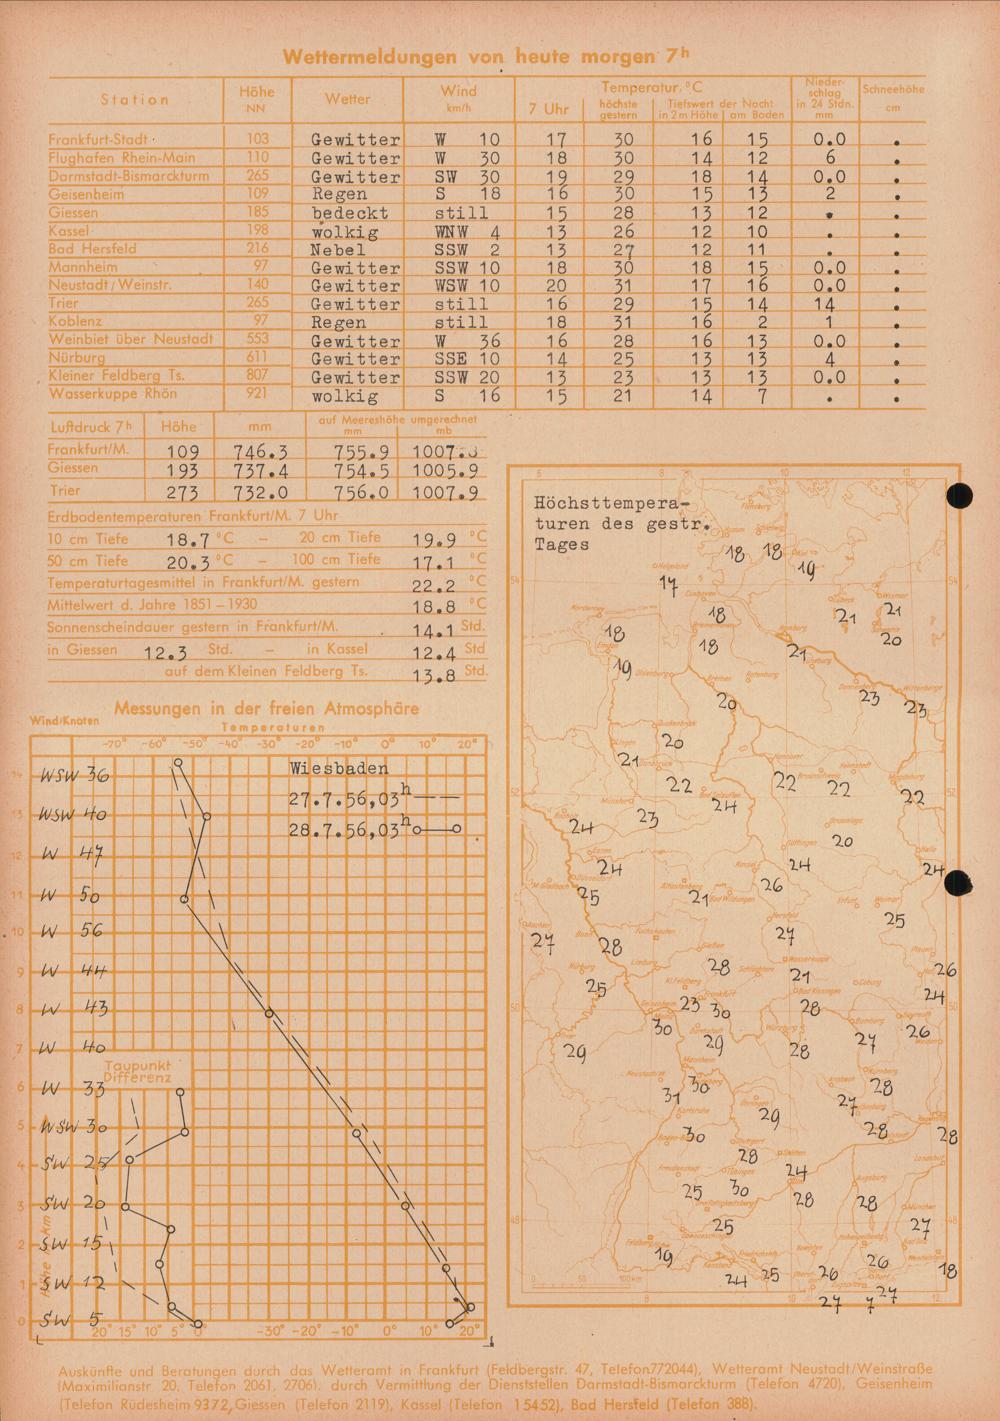 Wettermeldungen von heute morgen 7h
Station Höhe NN Wetter Wind km/h Temperatur °C 7 Uhr höchste gestern Tiefstwert der Nacht in 2 m Höhe am Boden Niederschlag in 24 Stdn. mm Schneehöhe cm
Frankfurt-Stadt 103 Gewitter W 10 17 30 16 15 0.0 .
Flughafen Rhein-Main 110 Gewitter W 30 18 30 14 12 6 .
Darmstadt-Bismarckturm 265 Gewitter SW 30 19 29 18 14 0.0 .
Geisenheim 109 Regen S 18 16 30 15 13 2 .
Giessen 185 bedeckt still 15 28 13 12 . .
Kassel 198 wolkig WNW 4 13 26 12 10 . .
Bad Hersfeld 216 Nebel SSW 2 13 27 12 11 . .
Mannheim 97 Gewitter SSW 10 18 30 18 15 0.0 .
Neustadt/Weinstr. 140 Gewitter WSW 10 20 31 17 16 0.0 .
Trier 265 Gewitter still 16 29 15 14 14 .
Koblenz 97 Regen still 18 31 16 2 1 .
Weinbiet über Neustadt 553 Gewitter W 36 16 28 16 13 0.0 .
Nürburg 611 Gewitter SSE 10 14 25 13 13 4 .
Kleiner Feldberg Ts. 807 Gewitter SSW 20 13 23 13 13 0.0 .
Wasserkuppe Rhön 921 wolkig S 16 15 21 14 7 . .
Luftdruck 7h Höhe mm auf Meereshöhe umgerechnet mm mb
Frankfurt/M. 109 746.3 755.9 1007.
Giessen 193 737.4 754.5 1005.9
Trier 273 732.0 756.0 1007.9
Erdbodentemperaturen Frankfurt/M. 7 Uhr
10 cm Tiefe 18.7 °C – 20 cm Tiefe 19.9 °C
50 cm Tiefe 20.3 °C – 100 cm Tiefe 17.1 °C
Temperaturtagesmittel in Frankfurt/M. gestern 22.2 °C
Mittelwert d. Jahre 1851–1930 18.8 °C
Sonnenscheindauer gestern in Frankfurt/M. 14.1 Std.
in Giessen 12.3 Std. – in Kassel 12.4 Std
auf dem Kleinen Feldberg Ts. 13.8 Std.
Messungen in der freien Atmosphäre
Wind/Knoten Temperaturen
-70° -60° -50° -40° -30° -20° -10° 0° 10° 20°
Wiesbaden
27.7.56,03h
28.7.56,03h
14 WSW 36
13 WSW 40
12 W 47
11 W 50
10 W 56
9 W 44
8 W 43
7 W 40
Taupunkt
Differenz
6 W 33
5 WSW 30
4 SW 25
3 SW 20
2 SW 15
1 SW 12
0 SW 5
Höhe in km
20° 15° 10° 5° 0° -30° -20° -10° 0° 10° 20°
Höchsttempera-
turen des gestr.
Tages
6 8 10 12
18 18 19
17
54 54
18 21 21
18 18 21 20
19 23 23
20
20
21 22 22 22 22
52
24 23 24
20
24 24 24
25 21 26 25
27 28 27
28 21 26
25 23 30 28 24
50
30 29 28 27 26
29
31 30 27 28
29
30 28 28
28 24
25 30 28 28
48 48
25 27
19 26 18
24 25 26
27 27
0 50 100 km
8 10 12
Auskünfte und Beratungen durch das Wetteramt in Frankfurt (Feldbergstr. 47, Telefon 772044), Wetteramt Neustadt/Weinstraße
(Maximilianstr 20, Telefon 2061, 2706), durch Vermittlung der Dienststellen Darmstadt-Bismarckturm (Telefon 4720), Geisenheim
(Telefon Rüdesheim 9372, Giessen (Telefon 2119), Kassel (Telefon 15452), Bad Hersfeld (Telefon 388).